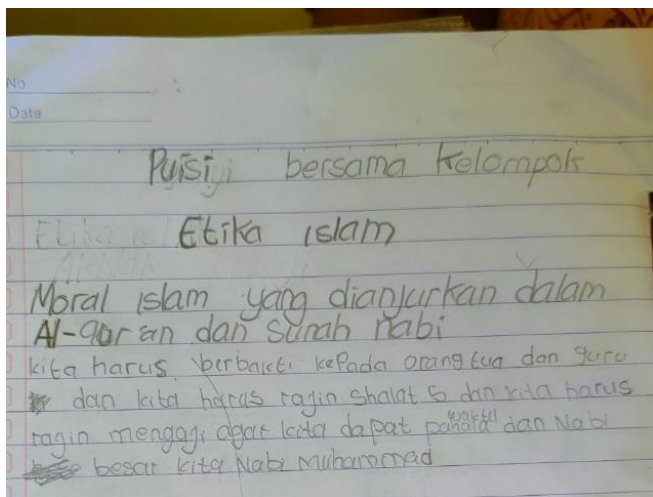 No.
Date
Puisi bersama kelompok
Etika islam
Moral islam yang dianjurkan dalam
Al-qor'an dan sunah nabi
kita harus berbakti kepada orang tua dan guru
dan kita harus rajin shalat 5 dan kita harus
waktu
rajin mengaji agar kita dapat pahala dan Nabi
besar kita Nabi Muhammad